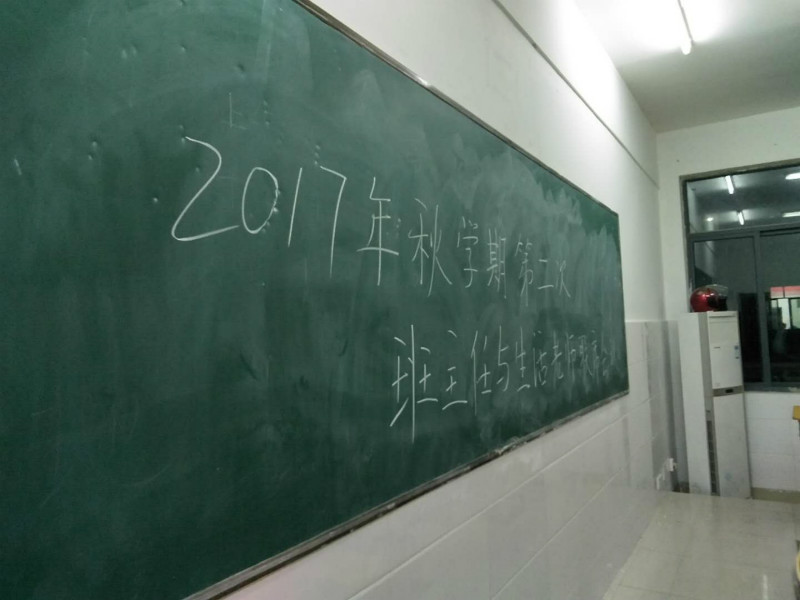 2017年秋学期第二次
班主任与生活老师联席会